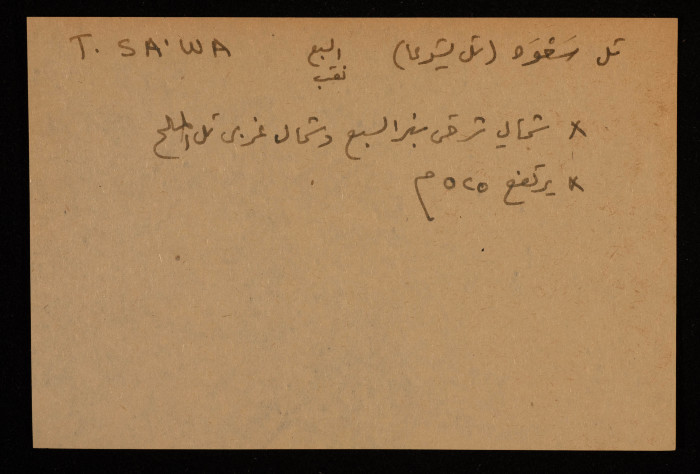 تل سَعْوَه (تل يشوعا) السبع T. SA'WA
نقب
× شمالي شرقي بئر السبع وشمال غربي تل الملح
× يرتفع ٥٢٥ م